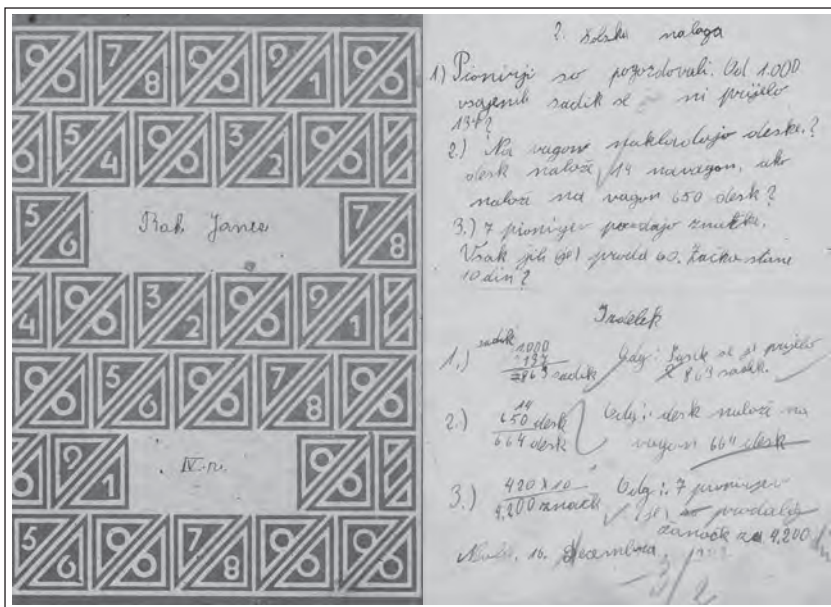 Rak Janez
IV. r.
2. šolska naloga
1) Pionirji so pogozdovali. Od 1.000
vsajenih sadik se ni prijelo
137?
2.) Na vagon nakladajo deske.?
desk naloži, 14 navagon, ako
naloži na vagon 650 desk?
3.) 7 pionirjev prodajo značke.
Vsak jih je proda 60. Začka stane
10 din?
Izdelek
1.) sadik 1000
137
863 sadik Odg: Sadik se je prijelo
863 sadik.
2.) 14
650 desk Odg: desk naloži na
664 desk vagon 664 desk
3.) 420 x 10 Odg: 7 pionirjev
4,200 značk je prodalo
značk za 4,200
16. decembra
-3/2